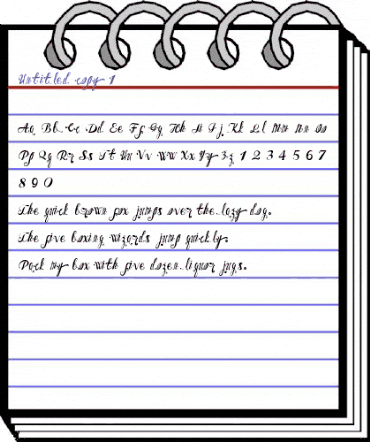 Untitled copy 1
Aa Bb Cc Dd Ee Ff Gg Hh Ii Jj Kk Ll Mm Nn Oo
Pp Qq Rr Ss Tt Uu Vv Ww Xx Yy Zz 1 2 3 4 5 6 7
8 9 0
The quick brown fox jumps over the lazy dog.
The five boxing wizards jump quickly.
Pack my box with five dozen liquor jugs.